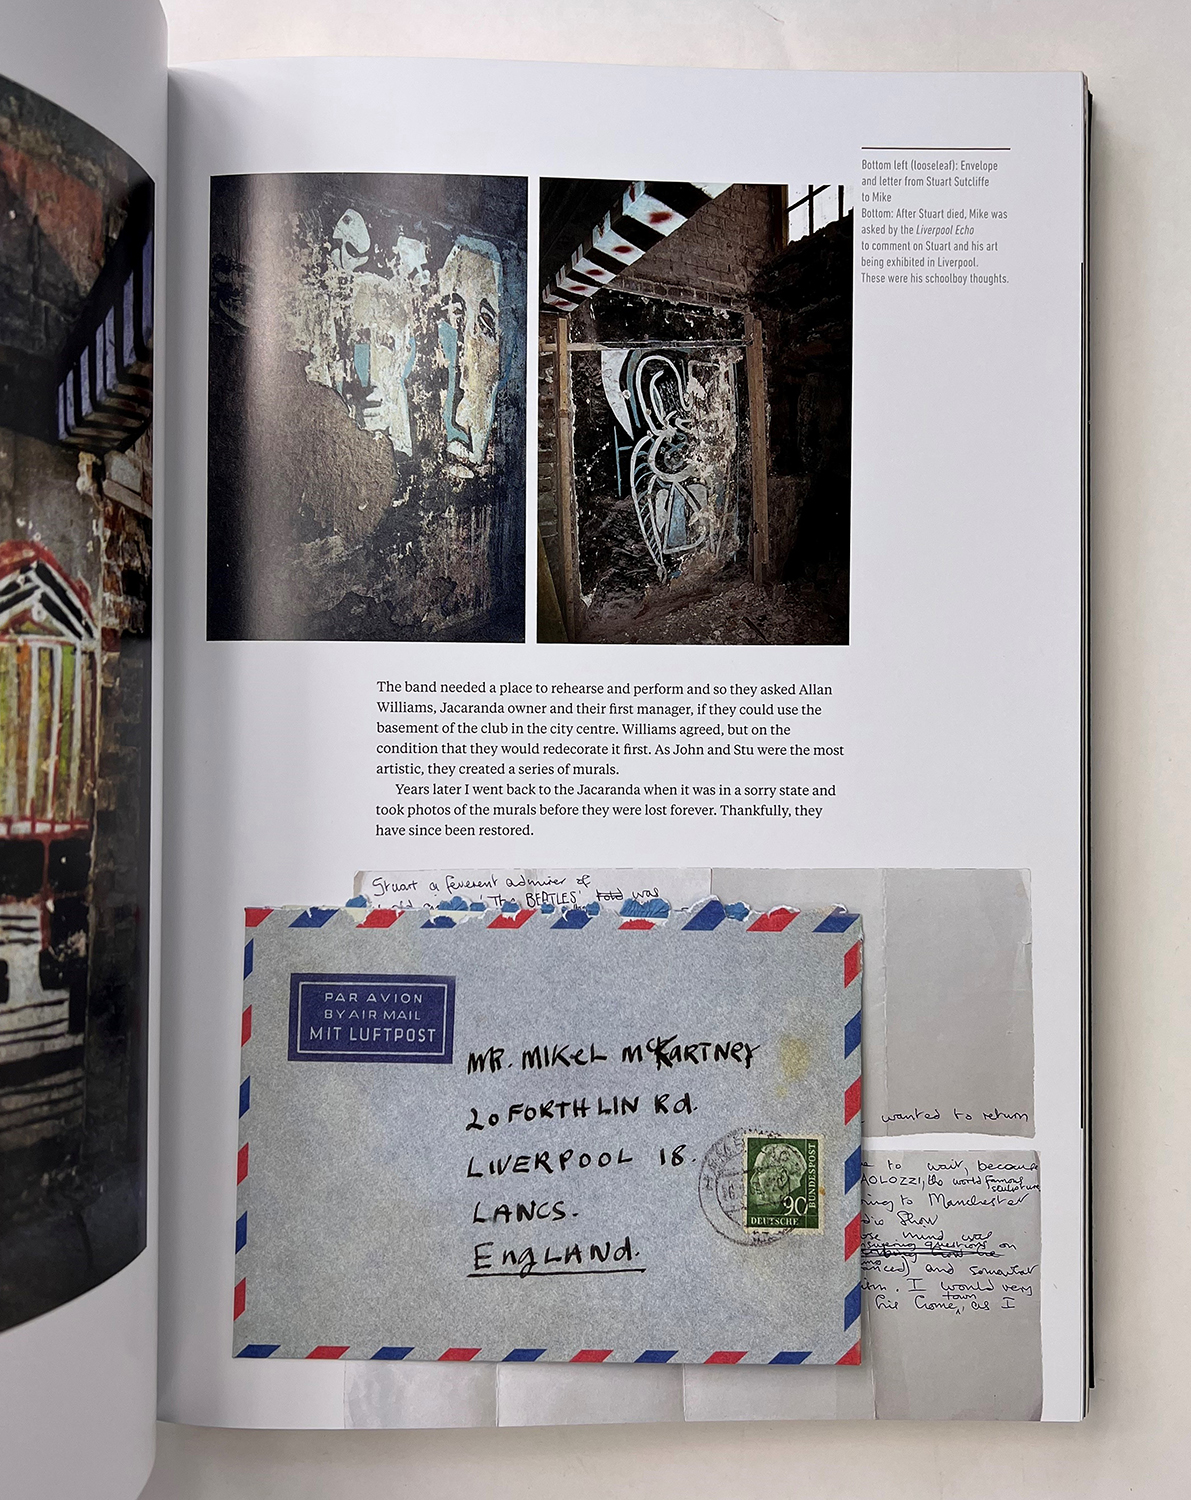 Bottom left (looseleaf): Envelope
and letter from Stuart Sutcliffe
to Mike
Bottom: After Stuart died, Mike was
asked by the Liverpool Echo
to comment on Stuart and his art
being exhibited in Liverpool.
These were his schoolboy thoughts.
The band needed a place to rehearse and perform and so they asked Allan
Williams, Jacaranda owner and their first manager, if they could use the
basement of the club in the city centre. Williams agreed, but on the
condition that they would redecorate it first. As John and Stu were the most
artistic, they created a series of murals.
Years later I went back to the Jacaranda when it was in a sorry state and
took photos of the murals before they were lost forever. Thankfully, they
have since been restored.
Stuart a feverent admirer of
'The BEATLES' told was
PAR AVION
BY AIR MAIL
MIT LUFTPOST
MR. MIKEL McKARTNEY
20 FORTHLIN Rd.
LIVERPOOL 18.
LANCS.
EngLANd.
90
DEUTSCHE
BUNDESPOST
wanted to return
to wait, because
AOLOZZI, the world famous
sculpture
ing to Manchester
Show
mind was
questions on
and somewhat
I would very
town
his home, as I